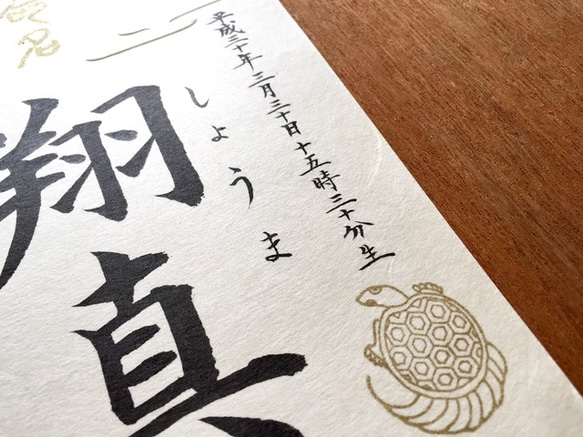 平成三十年三月三十日十五時三十分生
しょうま
翔真
命名